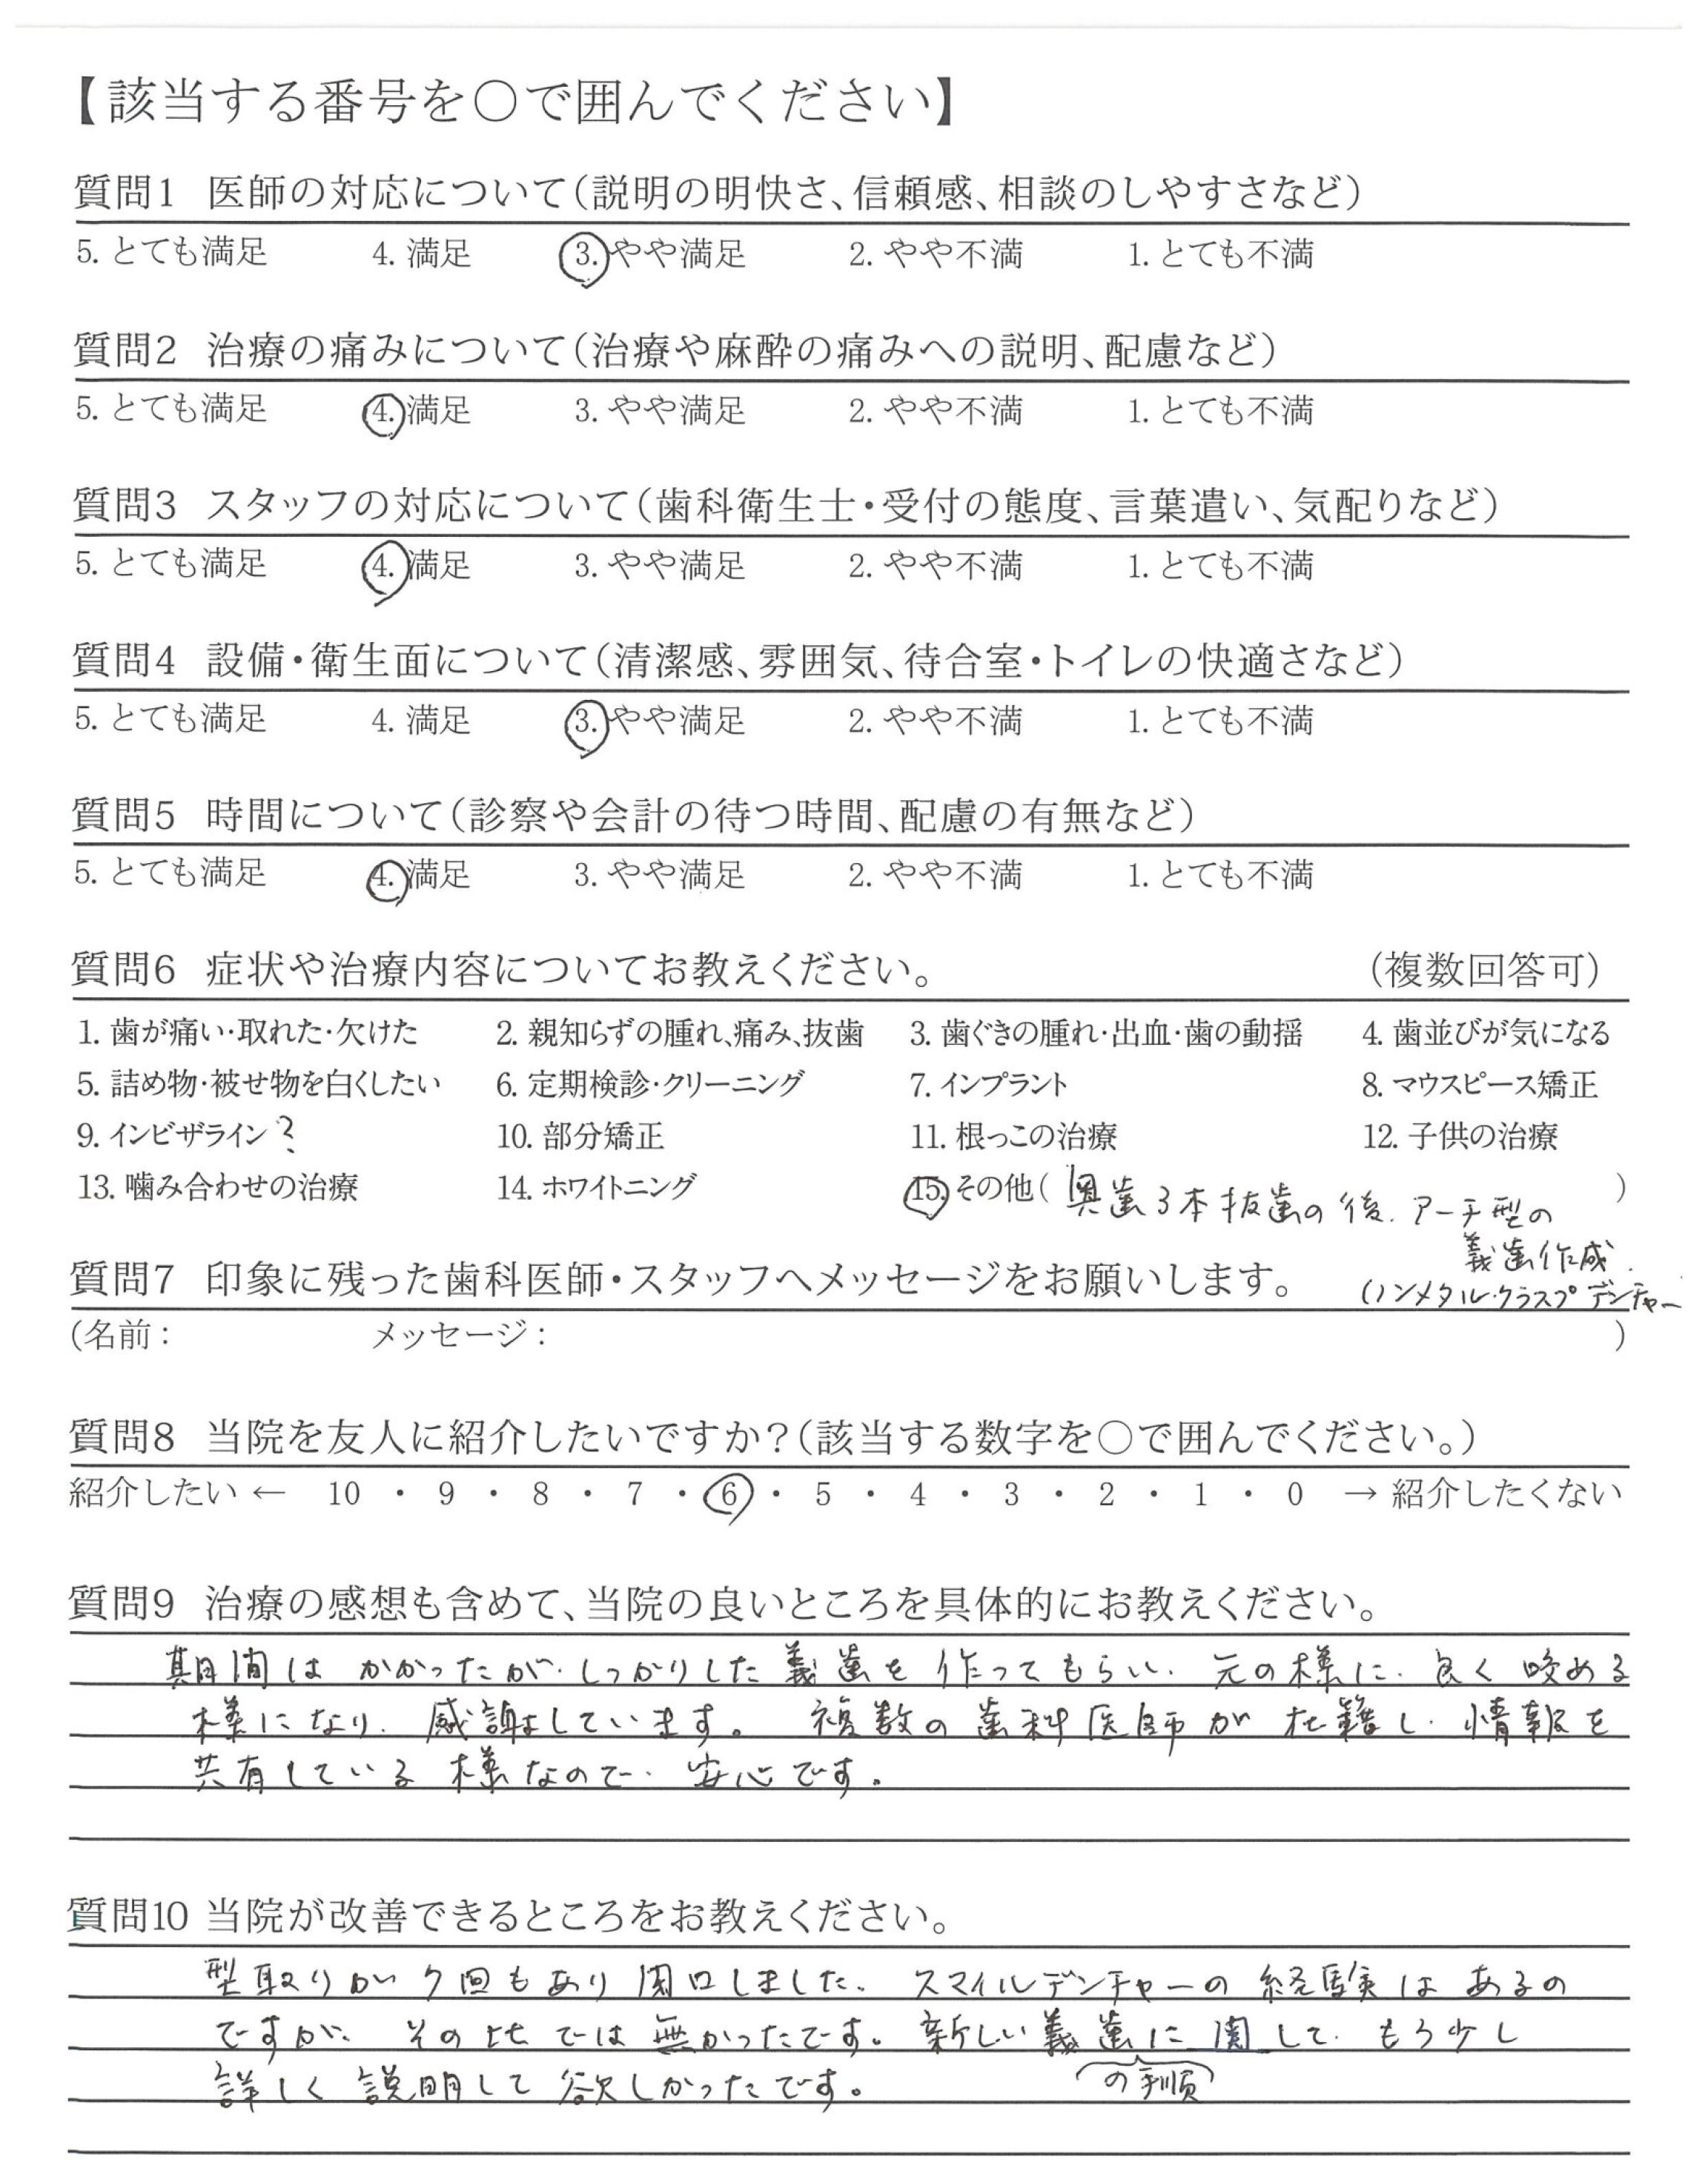 【該当する番号を○で囲んでください】
質問1 医師の対応について（説明の明快さ、信頼感、相談のしやすさなど）
5. とても満足 4. 満足 3. やや満足 2. やや不満 1. とても不満
質問2 治療の痛みについて（治療や麻酔の痛みへの説明、配慮など）
5. とても満足 4. 満足 3. やや満足 2. やや不満 1. とても不満
質問3 スタッフの対応について（歯科衛生士・受付の態度、言葉遣い、気配りなど）
5. とても満足 4. 満足 3. やや満足 2. やや不満 1. とても不満
質問4 設備・衛生面について（清潔感、雰囲気、待合室・トイレの快適さなど）
5. とても満足 4. 満足 3. やや満足 2. やや不満 1. とても不満
質問5 時間について（診察や会計の待つ時間、配慮の有無など）
5. とても満足 4. 満足 3. やや満足 2. やや不満 1. とても不満
質問6 症状や治療内容についてお教えください。 （複数回答可）
1. 歯が痛い・取れた・欠けた 2. 親知らずの腫れ、痛み、抜歯 3. 歯ぐきの腫れ・出血・歯の動揺 4. 歯並びが気になる
5. 詰め物・被せ物を白くしたい 6. 定期検診・クリーニング 7. インプラント 8. マウスピース矯正
9. インビザライン ? 10. 部分矯正 11. 根っこの治療 12. 子供の治療
13. 噛み合わせの治療 14. ホワイトニング 15. その他( 奥歯3本抜歯の後、アーチ型の )
義歯作成.
(ノンメタル・クラスプデンチャー
質問7 印象に残った歯科医師・スタッフへメッセージをお願いします。
(名前： メッセージ： )
質問8 当院を友人に紹介したいですか？（該当する数字を○で囲んでください。）
紹介したい ← 10 ・ 9 ・ 8 ・ 7 ・ 6 ・ 5 ・ 4 ・ 3 ・ 2 ・ 1 ・ 0 → 紹介したくない
質問9 治療の感想も含めて、当院の良いところを具体的にお教えください。
期間はかかったが、しっかりした義歯を作ってもらい、元の様に、良く咬める
様になり、感謝しています。複数の歯科医師が在籍し、情報を
共有している様なので、安心です。
質問10 当院が改善できるところをお教えください。
型取りが7回もあり閉口しました。スマイルデンチャーの経験はあるの
ですが、その比では無かったです。新しい義歯に関して、もう少し
の手順
詳しく説明して欲しかったです。